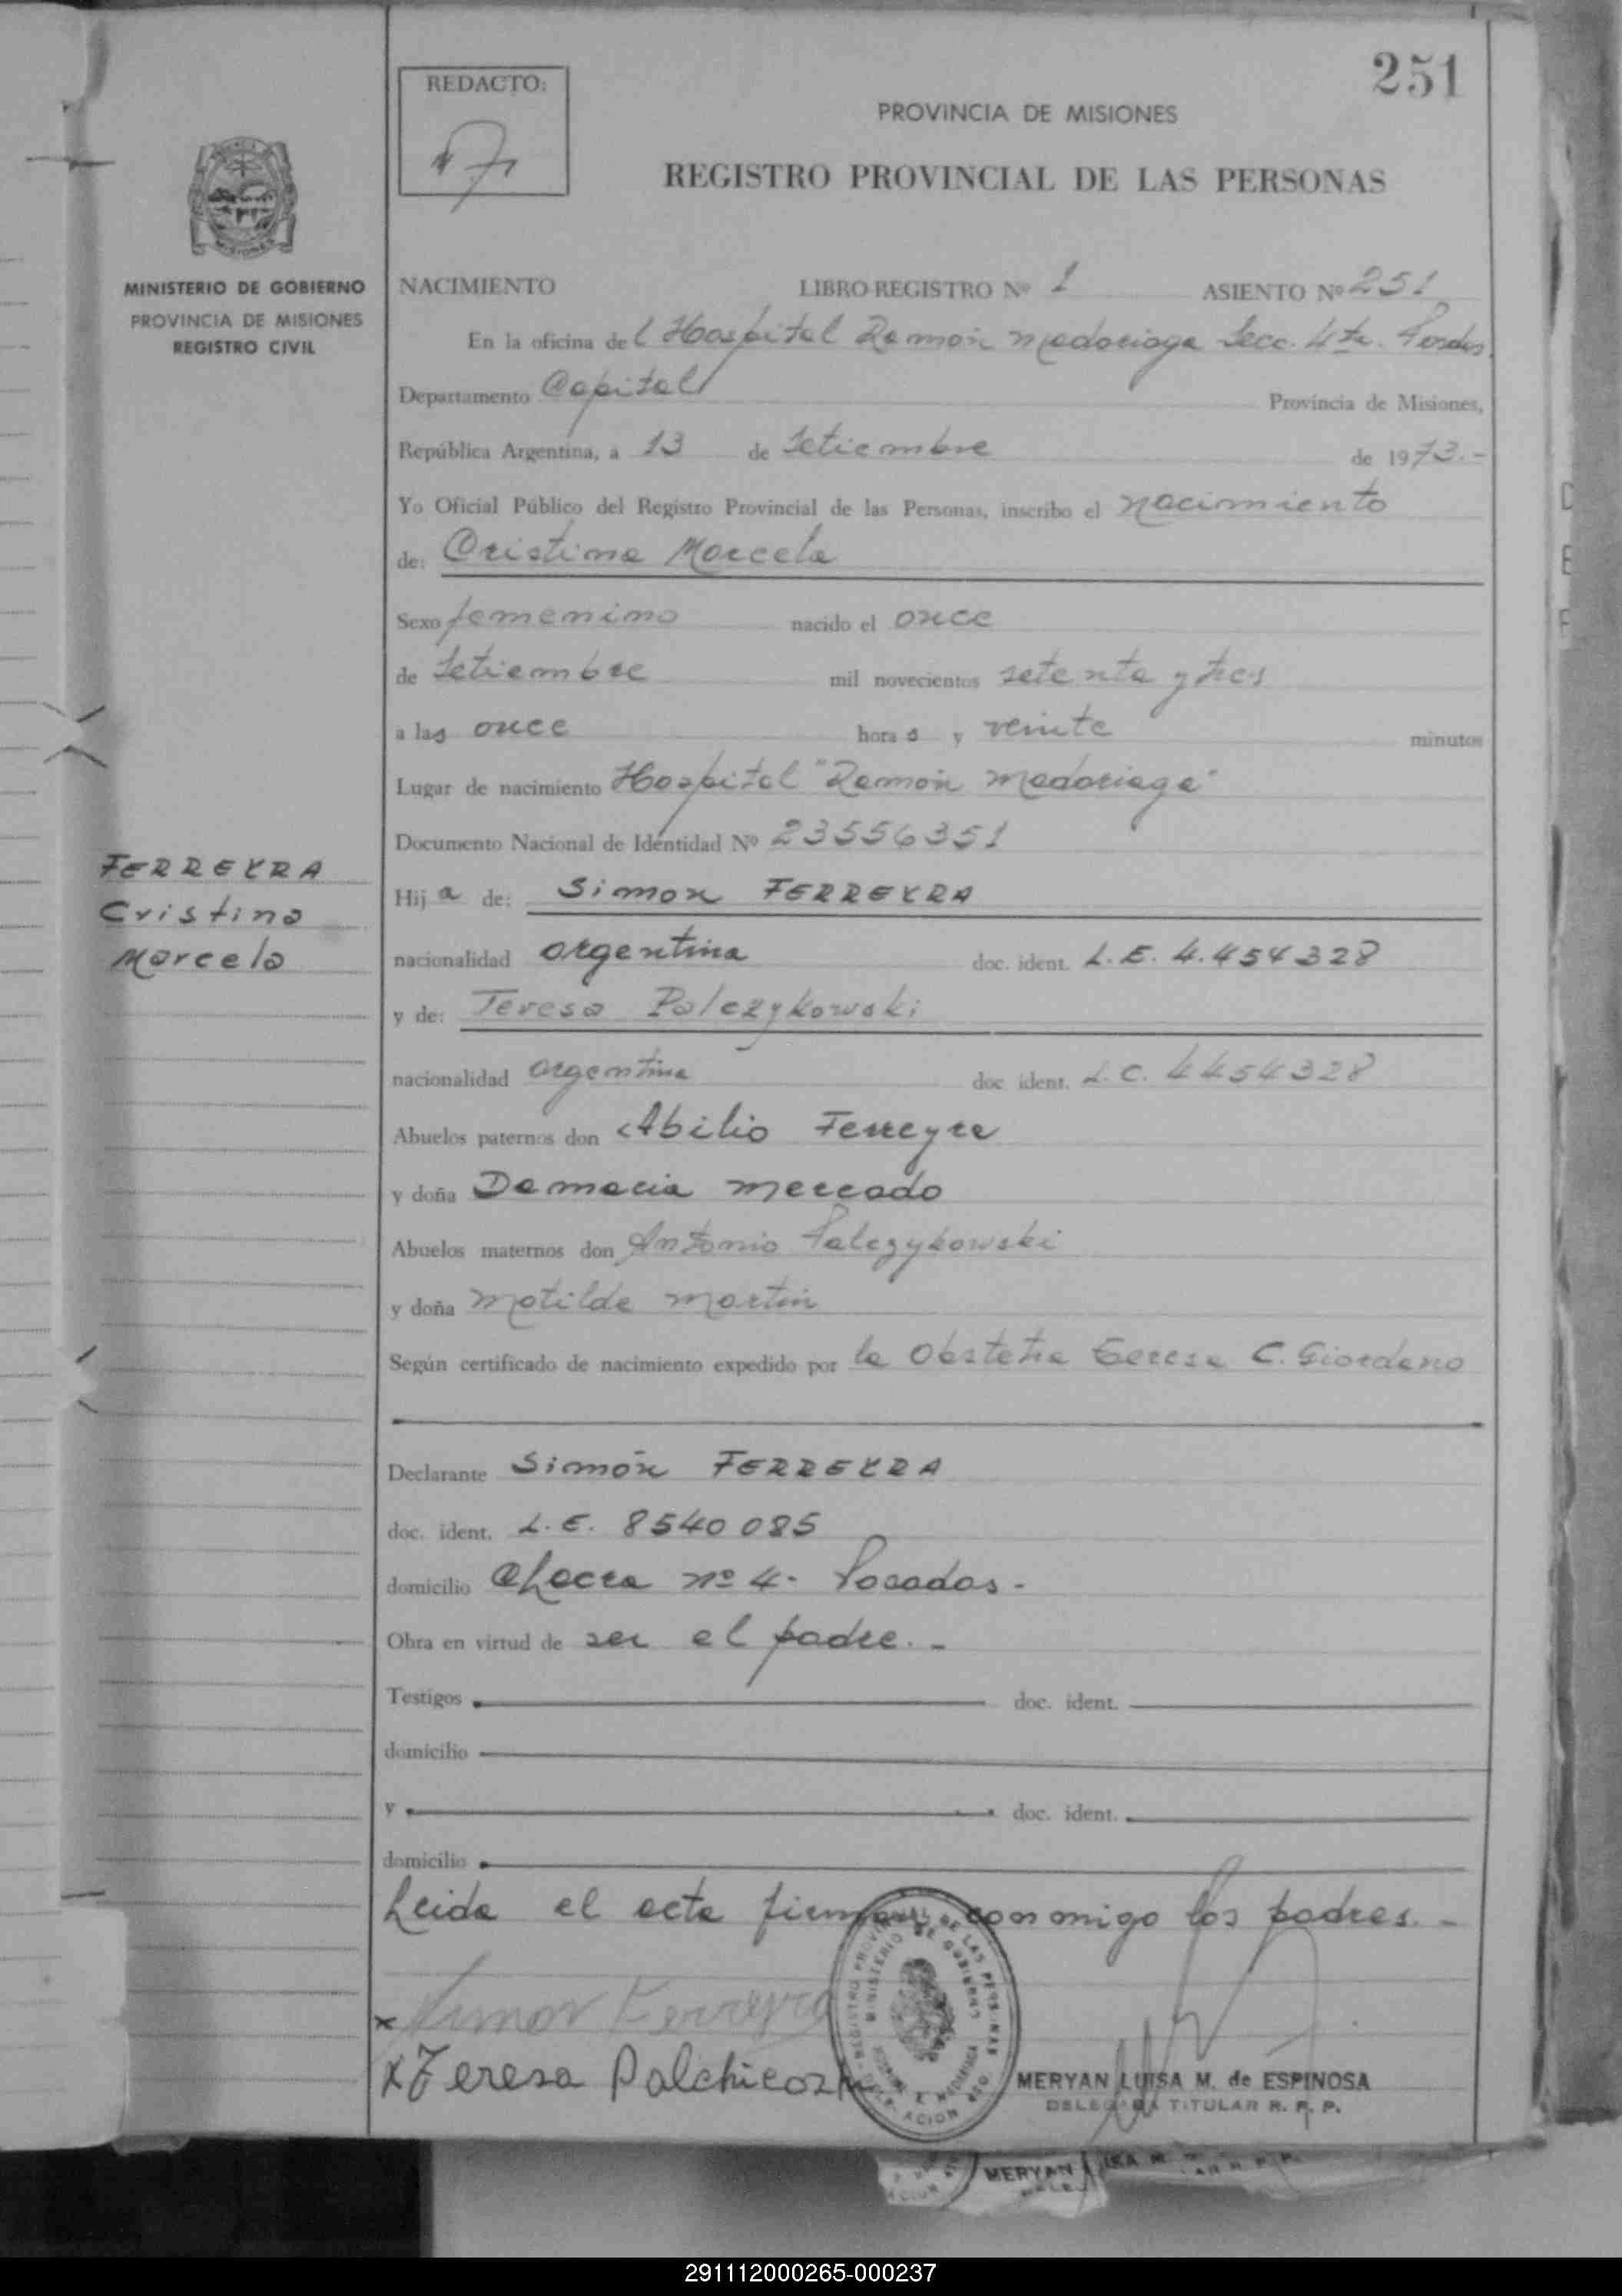 251
REDACTO:
PROVINCIA DE MISIONES
REGISTRO PROVINCIAL DE LAS PERSONAS
MINISTERIO DE GOBIERNO
PROVINCIA DE MISIONES
REGISTRO CIVIL
NACIMIENTO LIBRO REGISTRO Nº 1 ASIENTO Nº 251
En la oficina del Hospital Ramón Madariaga Secc. 4ta. Posadas
Departamento Capital Provincia de Misiones,
República Argentina, a 13 de Setiembre de 1973.-
Yo Oficial Público del Registro Provincial de las Personas, inscribo el nacimiento
de: Cristina Marcela
Sexo femenino nacido el once
de Setiembre mil novecientos setenta y tres
a las once horas y veinte minutos
Lugar de nacimiento Hospital "Ramón Madariaga"
Documento Nacional de Identidad Nº 23556351
FERREYRA
Cristina
Marcela
Hija de: Simon FERREYRA
nacionalidad argentina doc. ident. L.E. 4.454328
y de: Teresa Palczykowski
nacionalidad argentina doc ident. L.C. 4454328
Abuelos paternos don Abilio Ferreyra
y doña Damacia Mercado
Abuelos maternos don Antonio Palczykowski
y doña Matilde Martin
Según certificado de nacimiento expedido por la Obstetra Teresa C. Giordano
Declarante Simón FERREYRA
doc. ident. L.E. 8540085
domicilio Chacra nº 4- Posadas-
Obra en virtud de ser el padre.-
Testigos doc. ident.
domicilio
y doc. ident.
domicilio
Leida el acta firman conmigo los padres.-
x Simon Ferreyra
x Teresa
REGISTRO PROVINCIAL DE LAS PERSONAS
MINISTERIO DE GOBIERNO
MERYAN LUISA M. de ESPINOSA
DELEGADA TITULAR R. P. P.
MERYAN
291112000265-000237